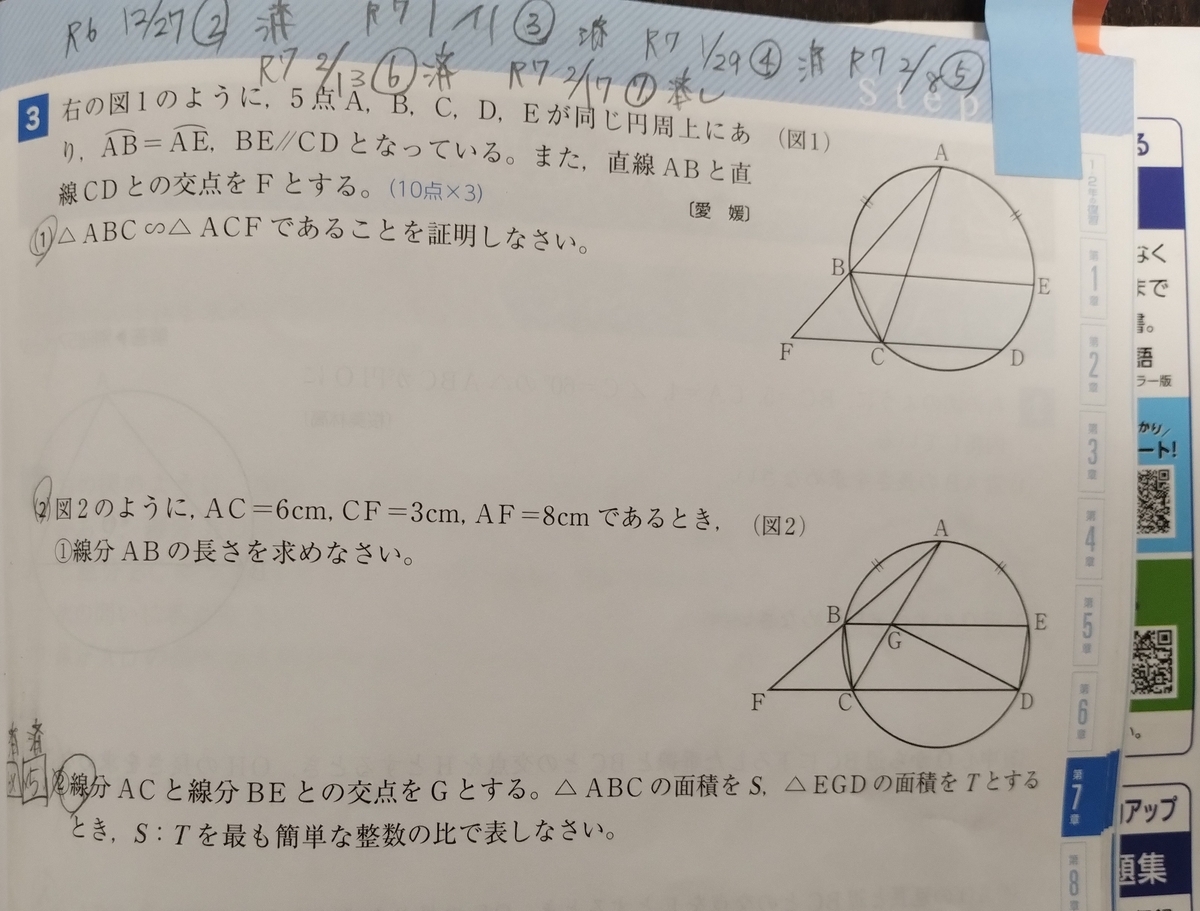 R6 12/27 ② 済 R7 1/11 ③ 済 R7 1/29 ④ 済 R7 2/8 ⑤
R7 2/13 ⑥ 済 R7 2/17 ⑦ 済
Step
3 右の図1のように，5点A，B，C，D，Eが同じ円周上にあ
り，AB＝AE，BE//CDとなっている。また，直線ABと直
線CDとの交点をFとする。(10点×3)
〔愛 媛〕
(1)△ABC∽△ACFであることを証明しなさい。
(図1)
A
B
E
F
C
D
(2)図2のように，AC＝6cm，CF＝3cm，AF＝8cmであるとき，
①線分ABの長さを求めなさい。
(図2)
A
B
E
G
F
C
D
済
②線分ACと線分BEとの交点をGとする。△ABCの面積をS，△EGDの面積をTとする
とき，S：Tを最も簡単な整数の比で表しなさい。
1・2年の復習
第1章
第2章
第3章
第4章
第5章
第6章
第7章
第8章
る
なく
まで
書。
語
ラー版
かり
ート!
アップ
題集